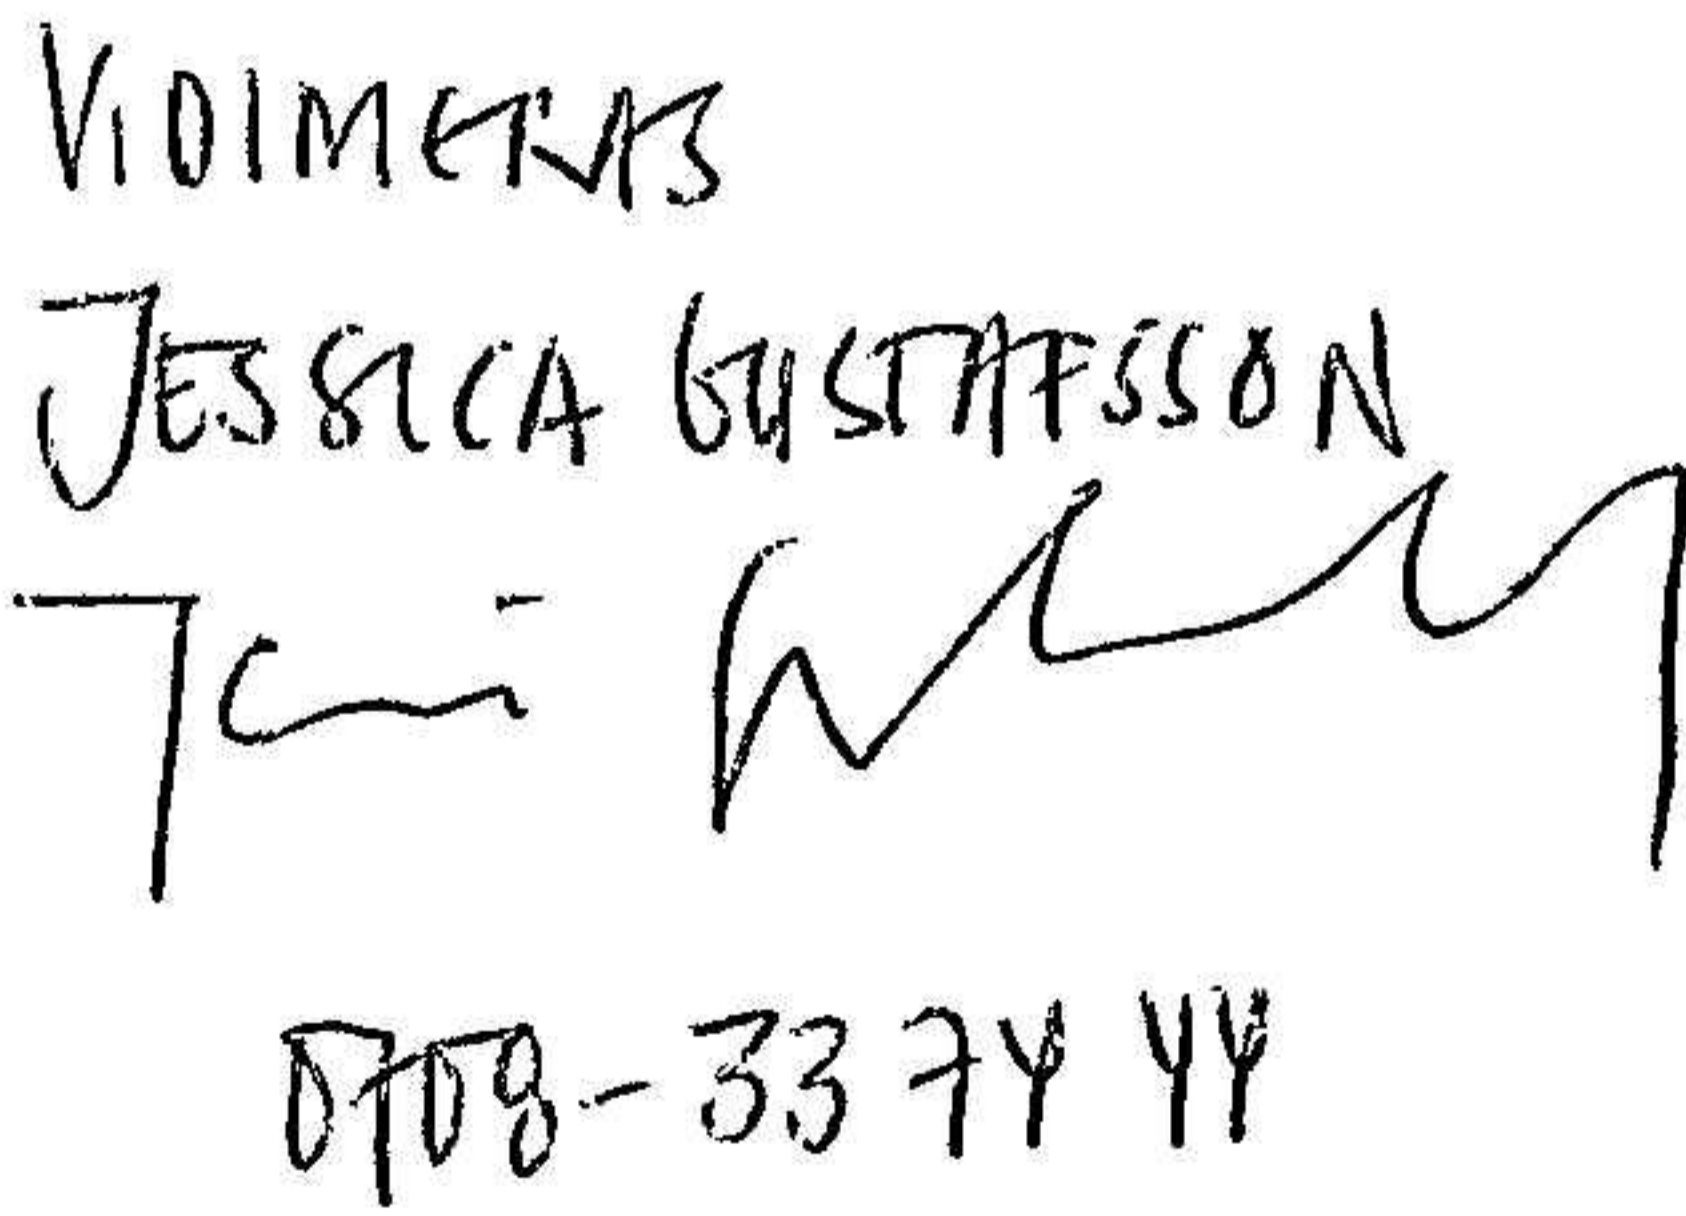 VIDIMERAS
JESSICA GUSTAFSSON
0708-33 74 44